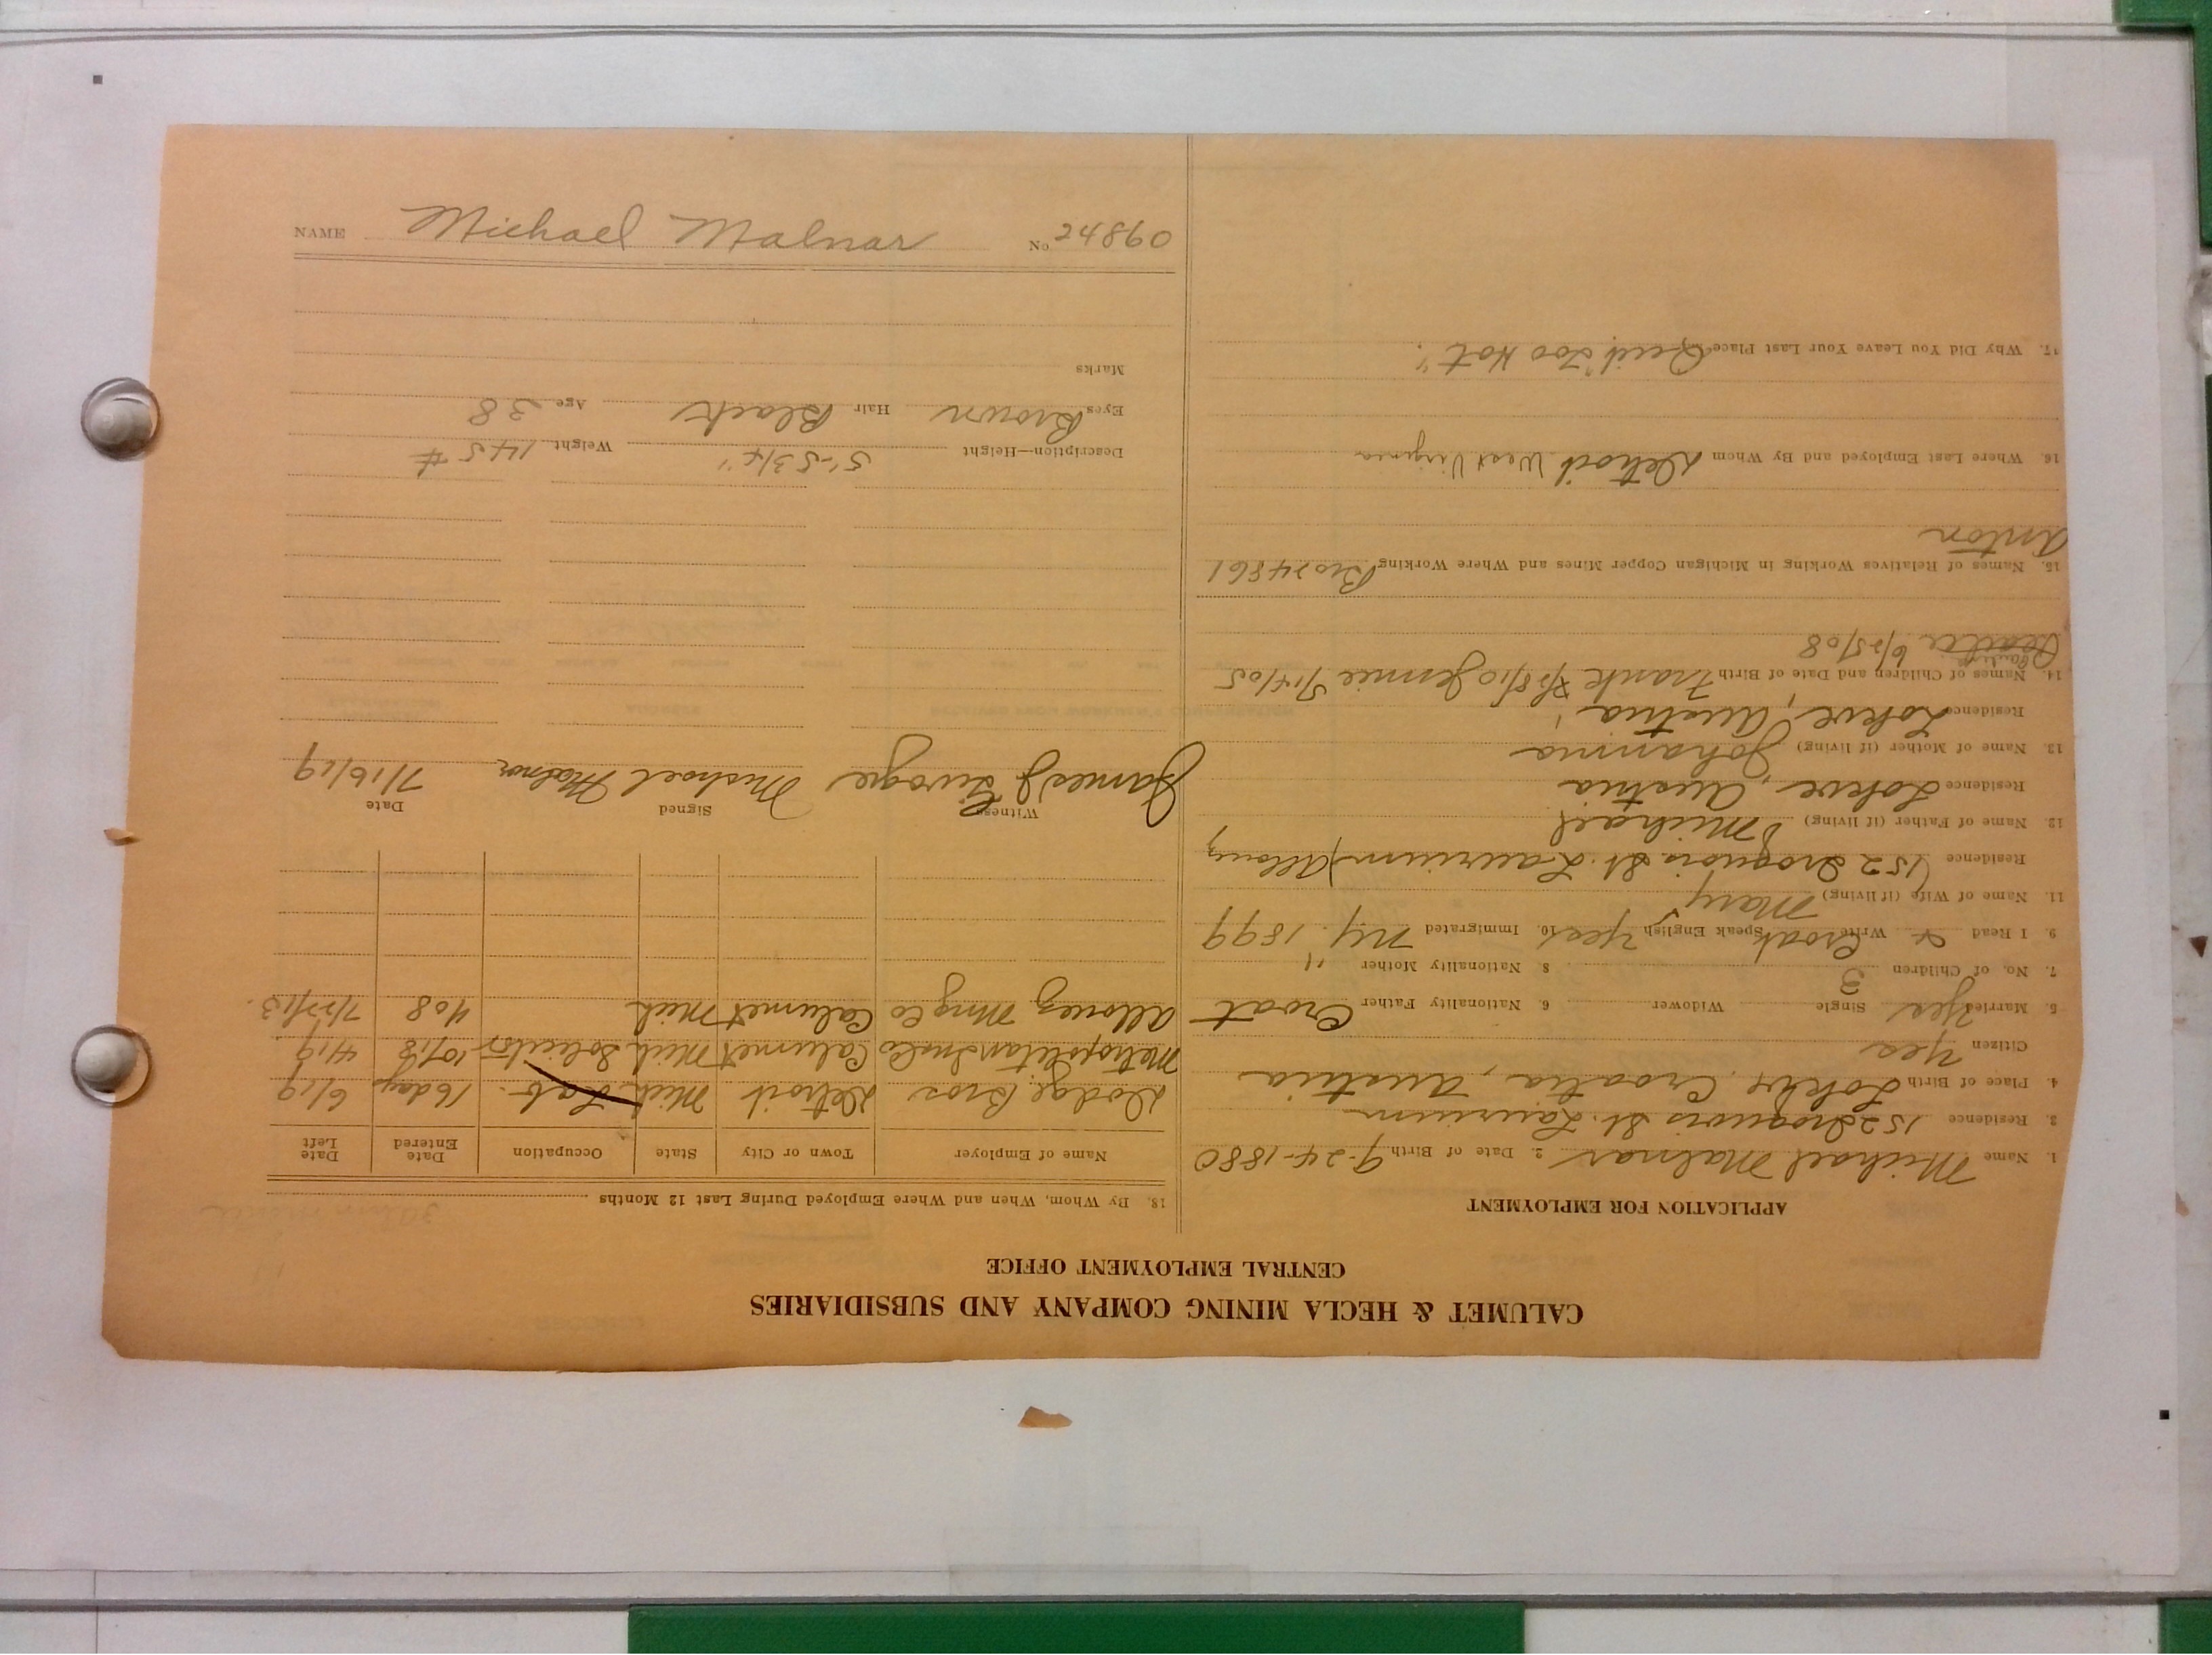 CALUMET & HECLA MINING COMPANY AND SUBSIDIARIES
CENTRAL EMPLOYMENT OFFICE
APPLICATION FOR EMPLOYMENT
1. Name Michael Malnar 2. Date of Birth 9-24-1880
3. Residence 152 Iroquois St. Laurium
4. Place of Birth Lokve, Croatia, Austria
Citizen Yes
5. Married Yes Single Widower 6. Nationality Father Croat
7. No. of Children 3 8. Nationality Mother "
9. I Read & Write Croat Speak English Yes 10. Immigrated N.Y. 1899
11. Name of Wife (if living) Mary
Residence (152 Iroquois St. Laurium) Allouez
12. Name of Father (if living) Michael
Residence Lokve, Austria
13. Name of Mother (if living) Johanna
Residence Lokve, Austria
14. Names of Children and Date of Birth Frank 8/10 Jennie 5/14/05
Pauline 6/25/08
15. Names of Relatives Working in Michigan Copper Mines and Where Working Bro 24861
Anton
16. Where Last Employed and By Whom Detroit West Virginia
17. Why Did You Leave Your Last Place Quit "Too Hot".
18. By Whom, When and Where Employed During Last 12 Months
Name of Employer Town or City State Occupation Date Entered Date Left
Dodge Bros Detroit Mich Lab. 16 day 6/19
Metropolitan Ins Co Calumet Mich Solicitor 10/18 4/19
Allouez Mng Co Calumet Mich 408 7/22/13.
Witness James J. Signed Michael Malnar Date 7/16/19
Description—Height 5'-5 3/4" Weight 145 #
Eyes Brown Hair Black Age 38
Marks
NAME Michael Malnar No. 24860